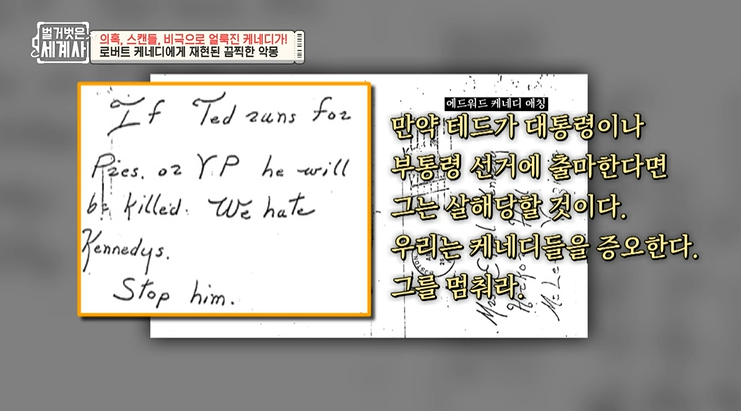 벌거벗은
세계사
의혹, 스캔들, 비극으로 얼룩진 케네디가!
로버트 케네디에게 재현된 끔찍한 악몽
If Ted runs for
Pres. or VP he will
be killed. We hate
Kennedys.
Stop him.
에드워드 케네디 애칭
만약 테드가 대통령이나
부통령 선거에 출마한다면
그는 살해당할 것이다.
우리는 케네디들을 증오한다.
그를 멈춰라.